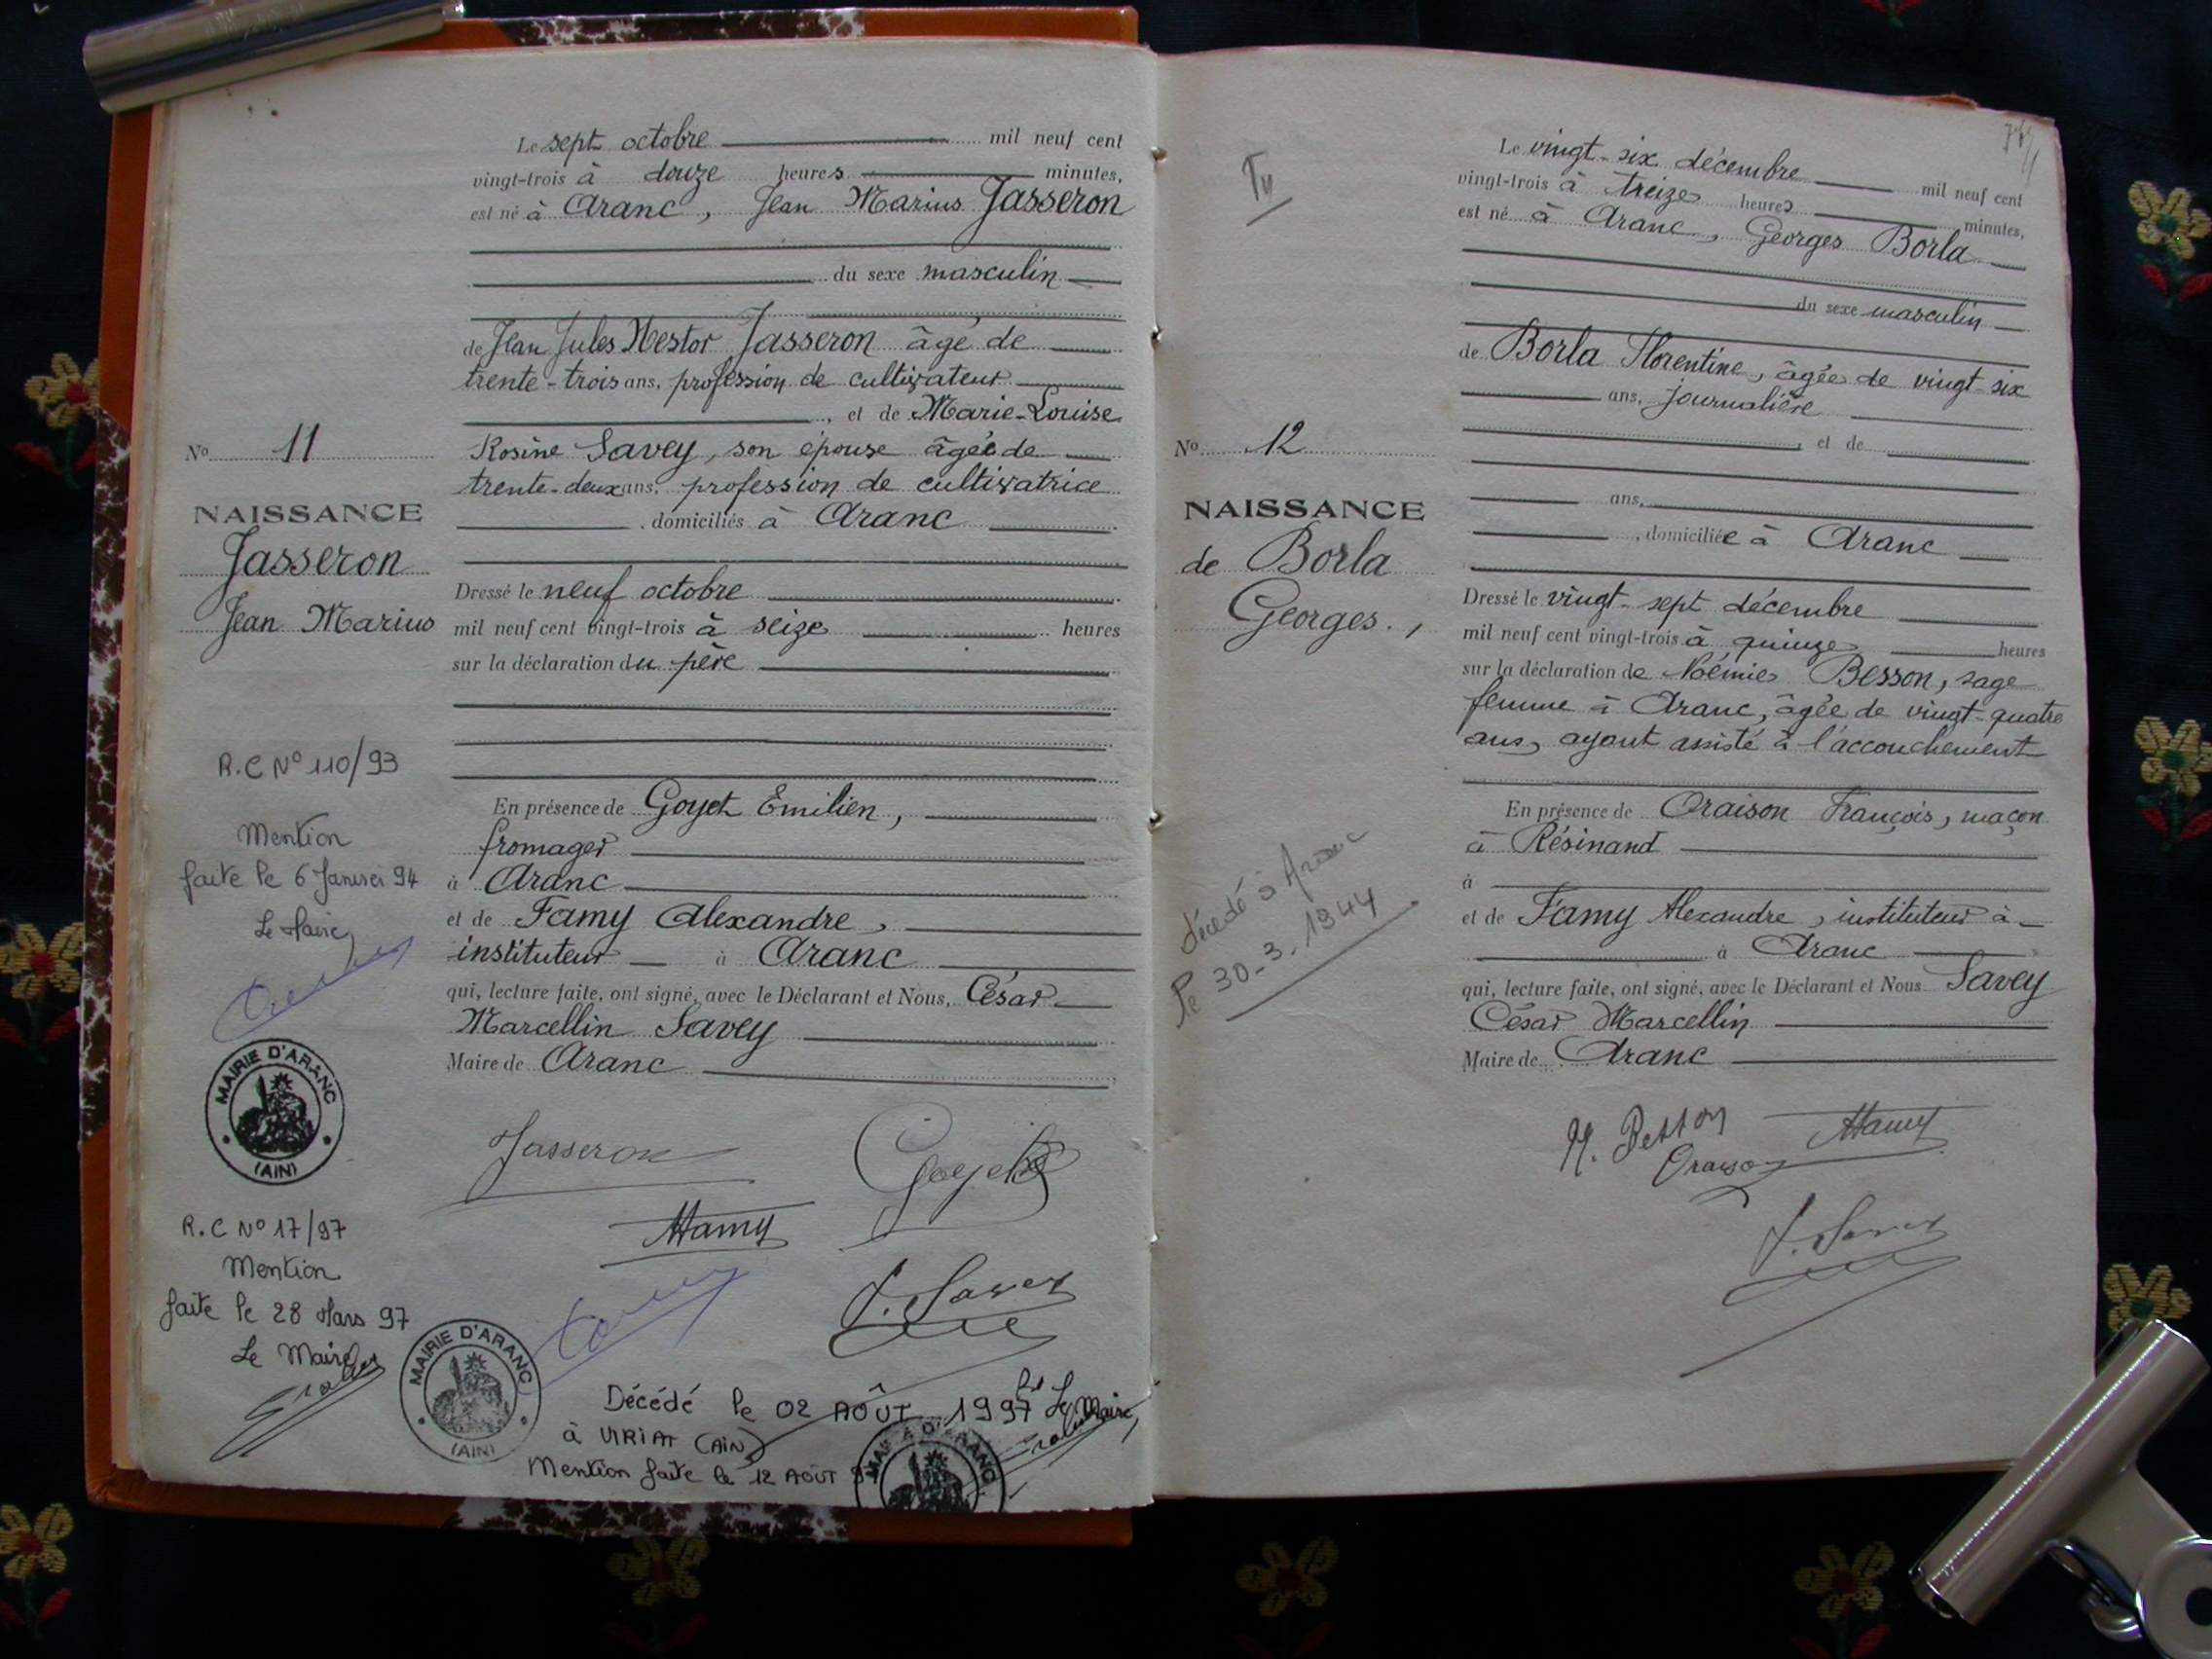 Le sept octobre mil neuf cent
vingt-trois à douze heures minutes,
est né à Aranc, Jean Marius Jasseron
du sexe masculin
de Jean Jules Nestor Jasseron âgé de
trente-trois ans, profession de cultivateur
, et de Marie-Louise
Rosine Savey, son épouse âgée de
trente-deux ans, profession de cultivatrice
, domiciliés à Aranc
Dressé le neuf octobre
mil neuf cent vingt-trois à seize heures
sur la déclaration du père
En présence de Goyet Emilien,
fromager
à Aranc
et de Famy Alexandre,
instituteur à Aranc
qui, lecture faite, ont signé, avec le Déclarant et Nous, César
Marcellin Savey
Maire de Aranc
Jasseron
Goyet
AFamy
Savey
Décédé le 02 AOÛT 1997 Le Maire,
à VIRIAT (AIN)
Mention faite le 12 AOÛT
MAIRIE D'ARANC
No 11
NAISSANCE
Jasseron
Jean Marius
R.C N° 110/93
Mention
faite le 6 Janvier 94
Le Maire,
MAIRIE D'ARANC
(AIN)
R.C N° 17/97
Mention
faite le 28 Mars 97
Le Maire
MAIRIE D'ARANC
(AIN)
Le vingt-six décembre mil neuf cent
vingt-trois à treize heures minutes,
est né à Aranc, Georges Borla
du sexe masculin
de Borla Florentine, âgée de vingt-six
ans, journalière
, et de
ans,
, domiciliée à Aranc
Dressé le vingt-sept décembre
mil neuf cent vingt-trois à quinze heures
sur la déclaration de Noémie Besson, sage
femme à Aranc, âgée de vingt-quatre
ans, ayant assisté à l'accouchement
En présence de Oraison François, maçon
à Résinand
à
et de Famy Alexandre, instituteur à
à Aranc
qui, lecture faite, ont signé, avec le Déclarant et Nous Savey
César Marcellin
Maire de Aranc
N. Besson
AFamy
Oraison
Savey
No 12
NAISSANCE
de Borla
Georges.,
décédé à Aranc
le 30-3-1944